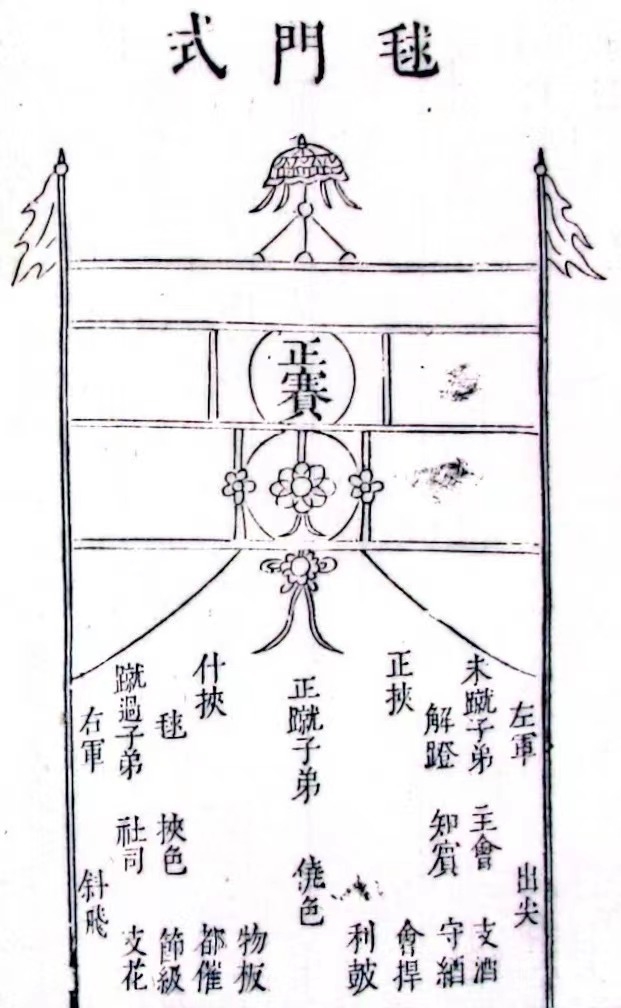 毬門式
正賽
左軍
出尖
未蹴子弟
主會
支酒
解蹬
知賓
守網
正挾
會捍
利皷
正蹴子弟
僥色
物板
什挾
都催
毬
挾色
節級
蹴過子弟
社司
支花
右軍
斜飛